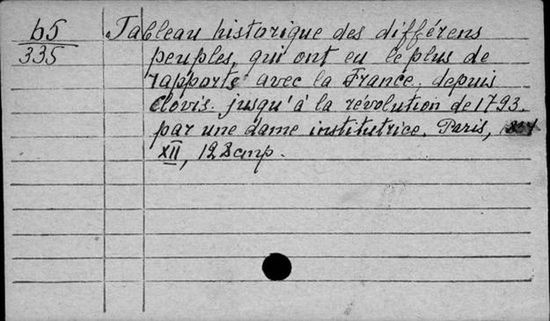 65 Tableau historique des différens
335 peuples, qui ont eu le plus de
rapports avec la France, depuis
Clovis jusqu'à la révolution de 1793.
par une dame institutrice. Paris,
XII, 128 cmp.